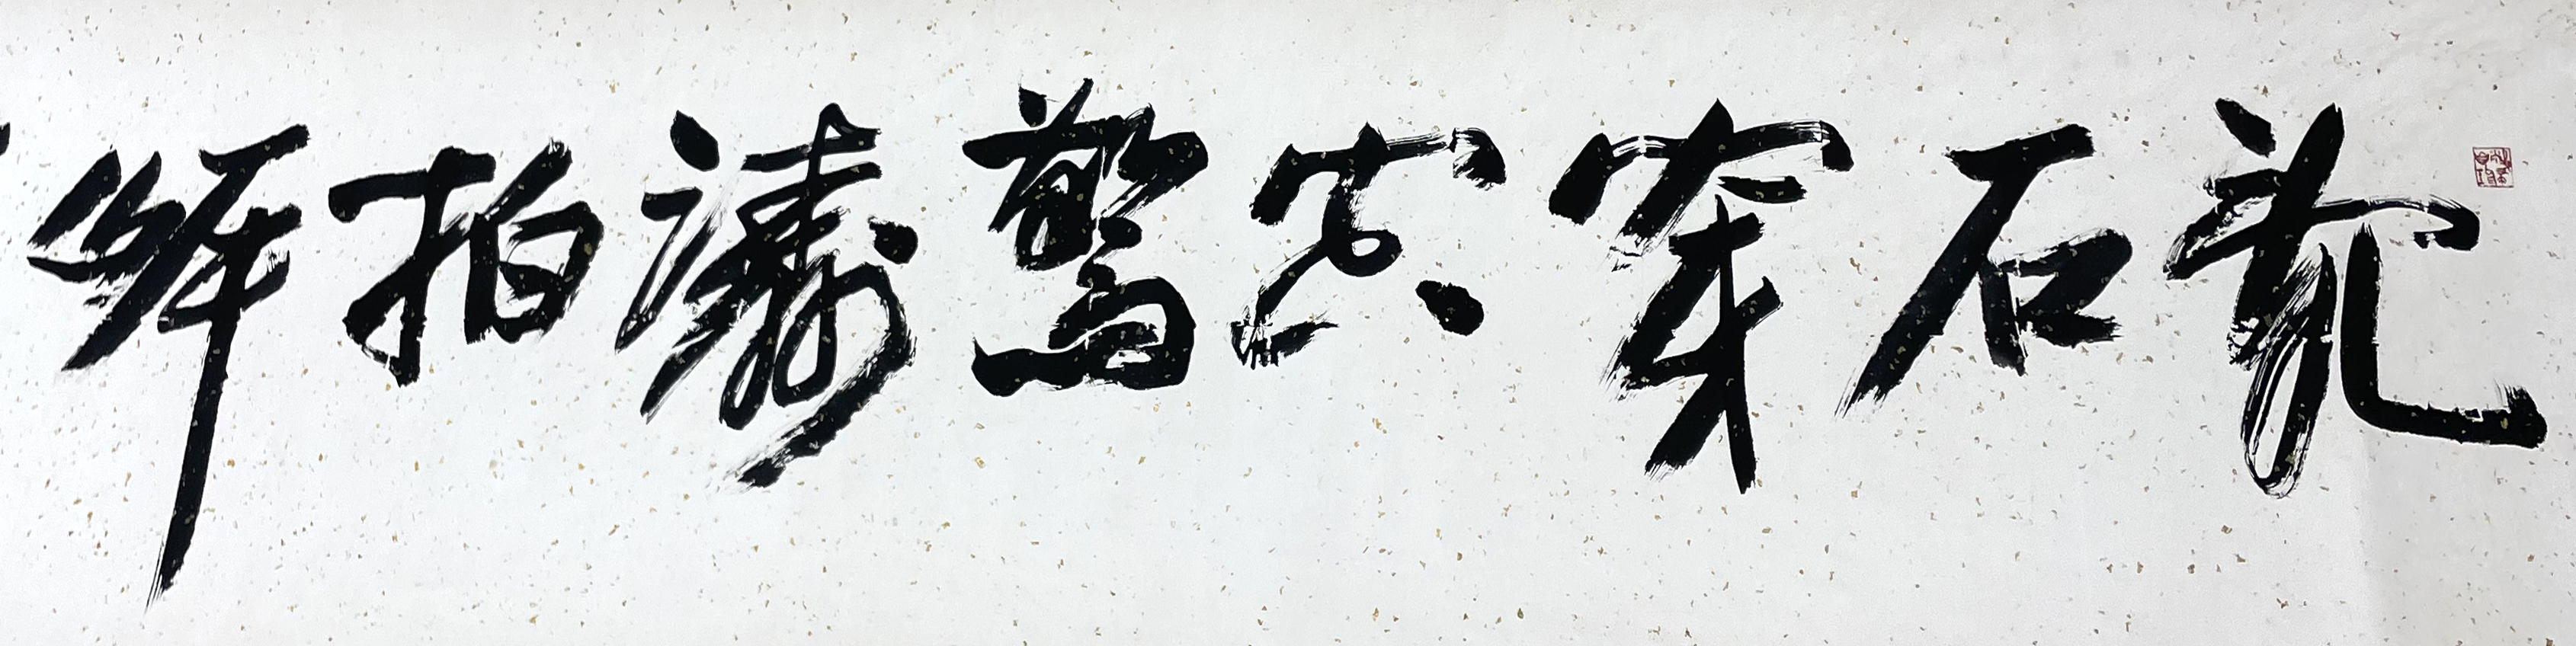 亂石穿空驚濤拍岸